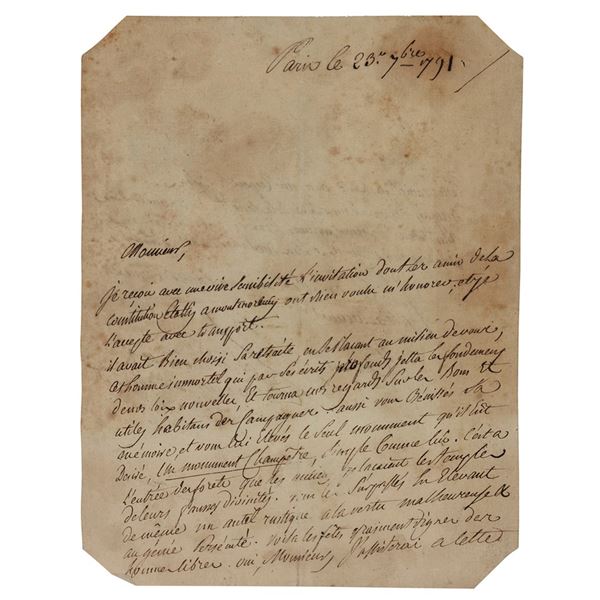 Paris le 23. 7bre 1791.
Monsieur,
je reçois avec une vive sensibilité l'invitation dont les amis de la
constitution établis a montmorency ont bien voulu m'honorer, et je
l'accepte avec transport.
il avait bien choisi sa retraite, en se plaçant au milieu de vous,
cet homme immortel qui par ses écrits profonds jetta les fondemens
de nos loix nouvelles et tourna nos regards sur les bons et
utiles habitans des campagnes. aussi vous chérissés sa
mémoire, et vous lui élevés le seul monument qu'il eut
désiré, un monument champêtre, simple comme lui. C'est a
l'entrée des forets que les anciens plaçaient les temples
de leurs fausses divinités. vous les surpassés en élevant
de même un autel rustique a la vertu malheureuse et
au génie persécuté. voila les fêtes vraiment dignes des
hommes libres. oui, Monsieur, j'assisterai a cette